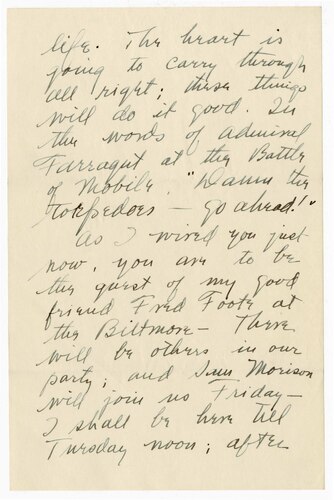 life. The heart is
going to carry through
all right; these things
will do it good. In
the words of Admiral
Farragut at the Battle
of Mobile, "Damn the
torpedoes — go ahead!"
As I wired you just
now, you are to be
the guest of my good
friend Fred Foote at
the Biltmore — There
will be others in our
party; and Morison
will join us Friday —
I shall be here till
Tuesday noon; after